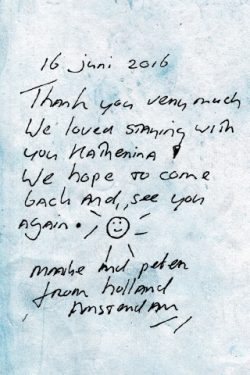 16 juni 2016
Thank you very much
We loved staying with
you Katherina
We hope to come
back and, see you
again.
and peter
from holland
Amsterdam